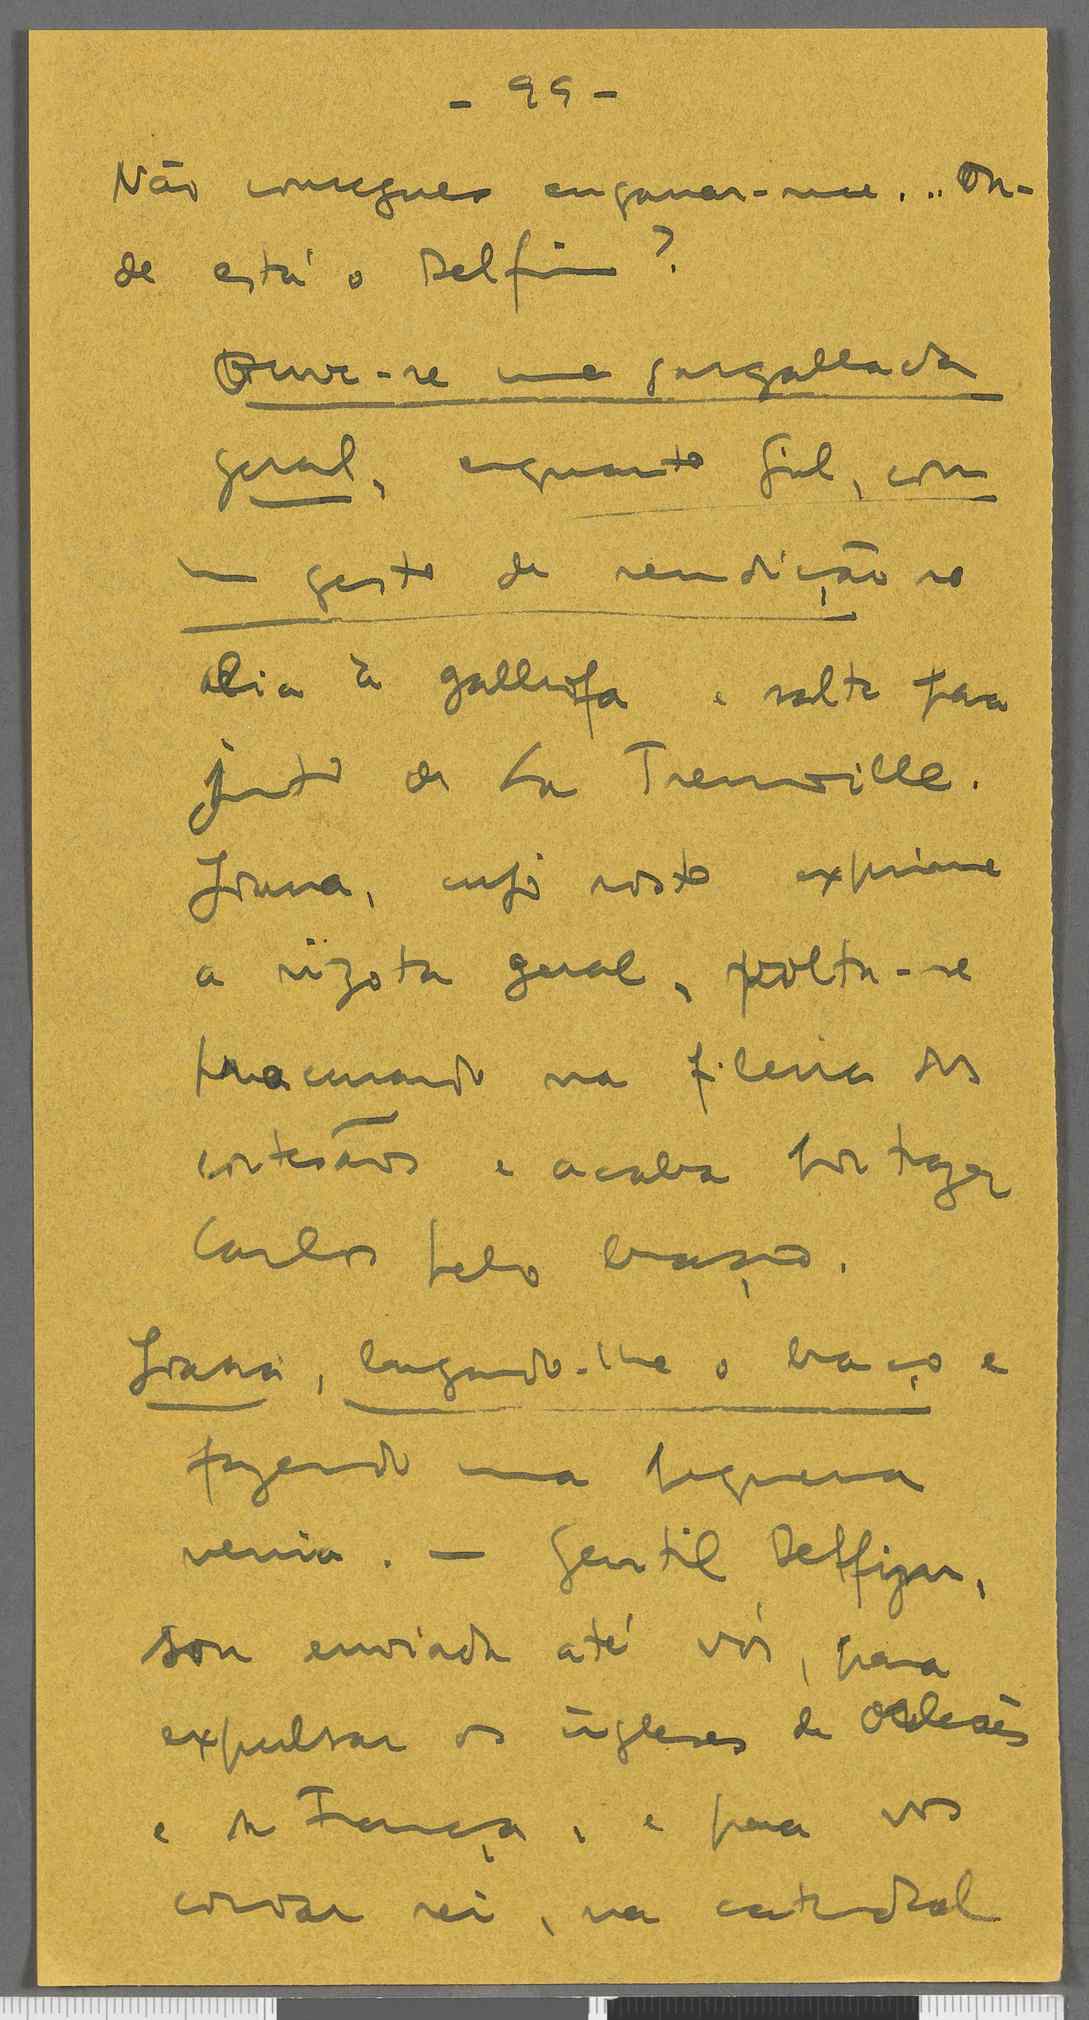 - 99 -
Não consegues enganar-me... On-
de está o Delfim?
Ouve-se uma gargalhada
geral, enquanto Gil, com
um gesto de rendição se
alia à galhofa e salta para
junto de La Tremoille.
Joana, cujo rosto exprime
a rizota geral, volta-se
procurando na fileira dos
cortesãos e acaba por trazer
Carlos pelo braço.
Joana, largando-lhe o braço e
fazendo uma pequena
venia. — Gentil Delfim,
sou enviada até vós, para
expulsar os ingleses de Orleães
e da França, e para vos
coroar rei, na catedral